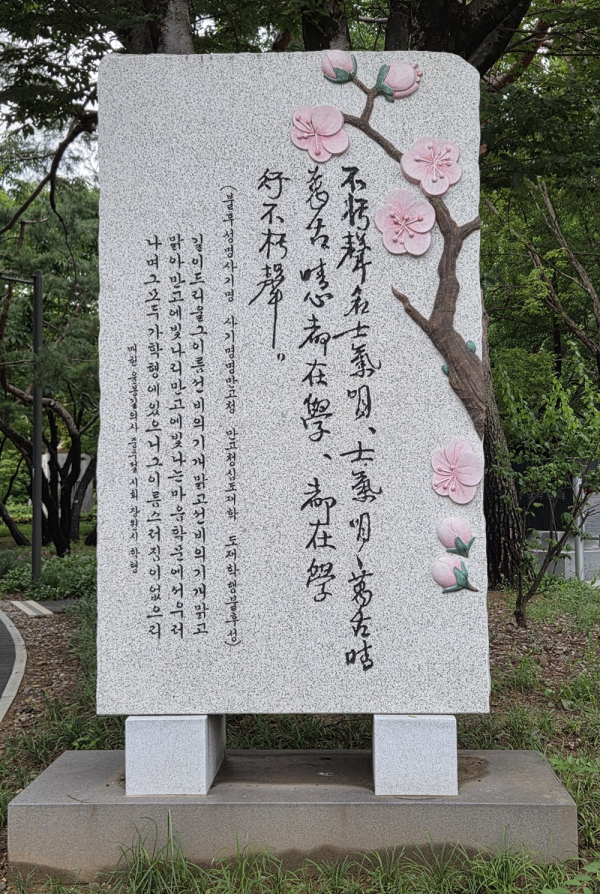 不朽聲名士氣明、士氣明、萬古晴
萬古晴心都在學、都在學
行不朽聲〃
(불후성명사기명 사기명명만고정 만고정심도재학 도재학행불후성)
길이드리울그이름선비의기개맑고선비의기개맑고
맑아만고에빛나리만고에빛나는마음학문에어우러
나며그모두가학행에있으니그이름스러짐이없으리
매헌 윤봉길의사 중추절 시회 장원시 학행